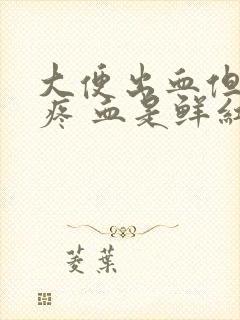 大便出血但
疼 血是鲜红
菱葉